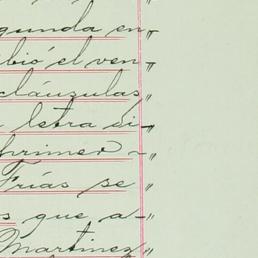 gunda en
bió el ven
cláusulas
letra si-
primer -
Frías se
s que a-
Martinez